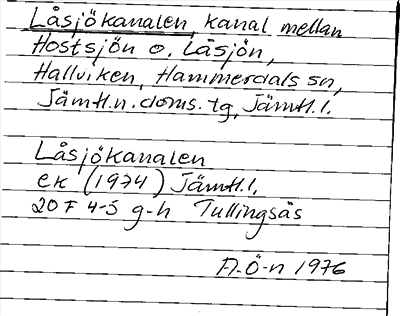 Låsjökanalen, kanal mellan
Hostsjön o. Låsjön,
Hallviken, Hammerdals sn,
Jämtl.n.doms.tg, Jämtl.l.
Låsjökanalen
ek (1974) Jämtl.l.
20F 4-5 g-h Tullingsås
A.Ö-n 1976